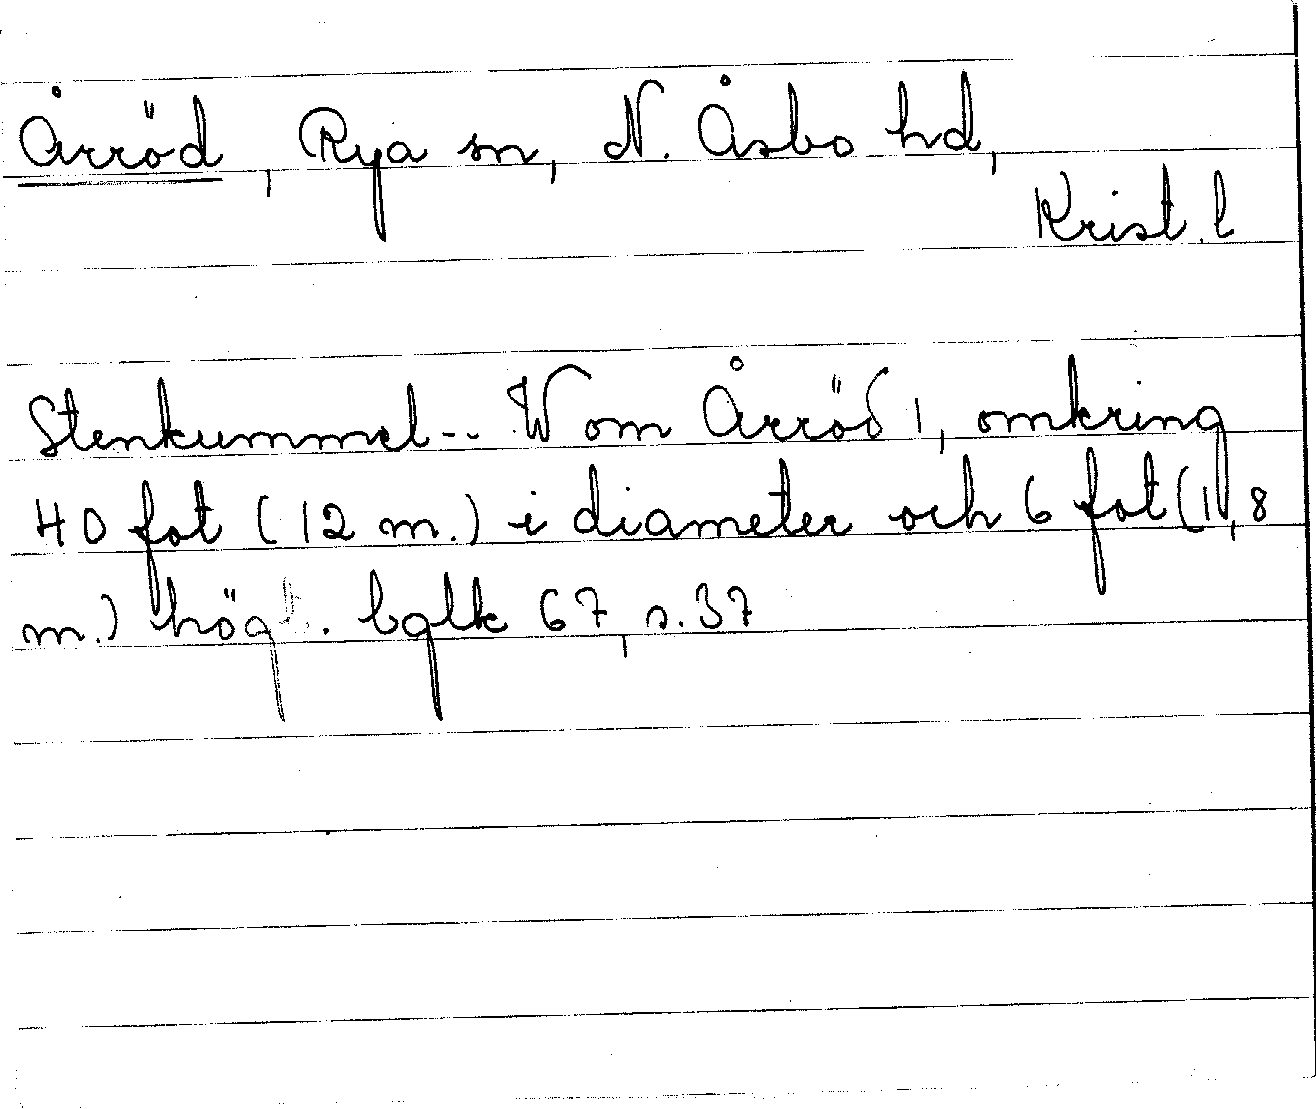 Årröd, Rya sn, N. Åsbo hd,
Krist. l
Stenkummel -- W om Årröd 1, omkring
40 fot (12 m.) i diameter och 6 fot (1,8
m.) högt. bglk 67, s. 37